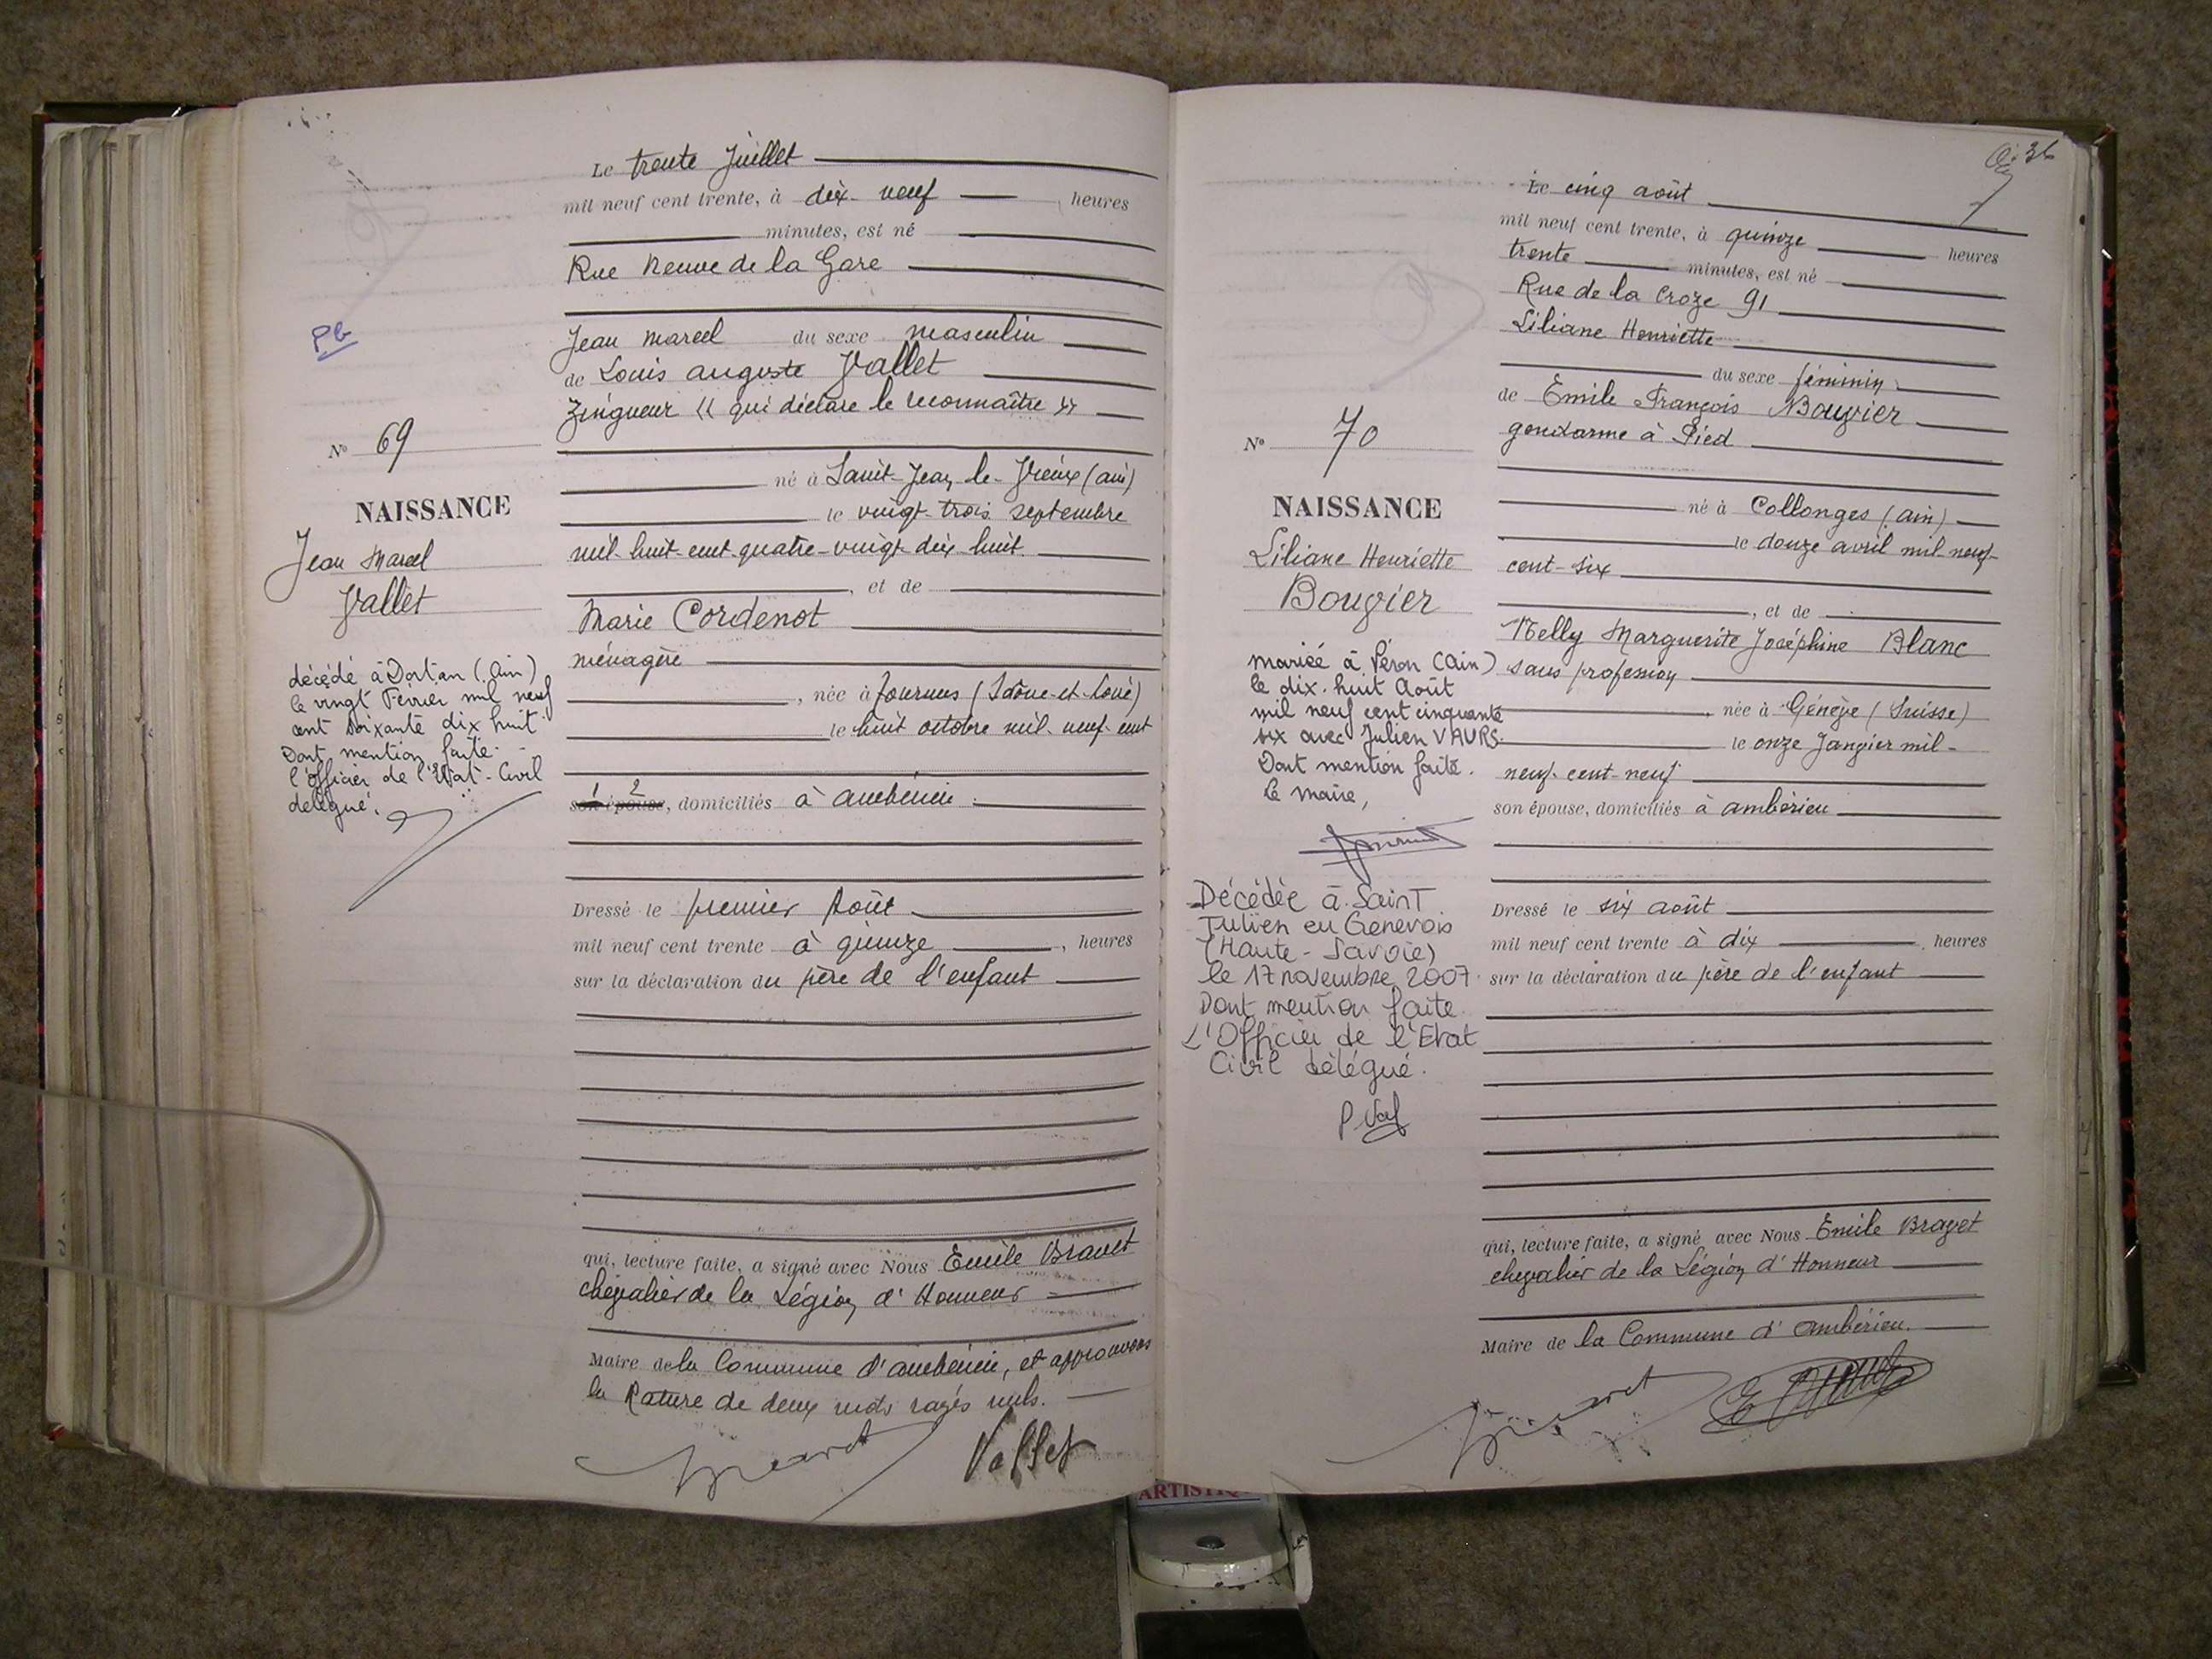 Le trente Juillet
mil neuf cent trente, à dix-neuf heures
minutes, est né
Rue Neuve de la Gare
Jean Marcel du sexe masculin
de Louis Auguste Vallet
Zingueur « qui déclare le reconnaître »
né à Saint-Jean-le-Vieux (ain)
le vingt-trois septembre
mil-huit-cent-quatre-vingt-dix-huit
, et de
Marie Cordenot
ménagère
, née à Tournus (Saône-et-Loire)
le huit octobre mil-neuf-cent
1 2
son épouse, domiciliés à ambérieu
Dressé le premier Août
mil neuf cent trente à quinze , heures
sur la déclaration du père de l'enfant
qui, lecture faite, a signé avec Nous Emile Bravet
chevalier de la Légion d'Honneur
Maire de la Commune d'ambérieu, et approuvons
la Rature de deux mots rayés nuls.
Vallet
Pb
N° 69
NAISSANCE
Jean Marcel
Vallet
décédé à Dortan (Ain)
le vingt Février mil neuf
cent soixante dix huit.
Dont mention faite.
l'officier de l'Etat-Civil
délégué.
36
Le cinq août
mil neuf cent trente, à quinze heures
trente minutes, est né
Rue de la Croze 91
Liliane Henriette
du sexe féminin
de Emile François Bouvier
gendarme à Pied
né à Collonges (ain)
le douze avril mil-neuf-
cent-six
, et de
Nelly Marguerite Joséphine Blanc
sans profession
, née à Génève (Suisse)
le onze Janvier mil-
neuf-cent-neuf
son épouse, domiciliés à ambérieu
Dressé le six août
mil neuf cent trente à dix , heures
sur la déclaration du père de l'enfant
qui, lecture faite, a signé avec Nous Emile Bravet
chevalier de la Légion d'Honneur
Maire de la Commune d'ambérieu.
N° 70
NAISSANCE
Liliane Henriette
Bouvier
mariée à Péron (Ain)
le dix-huit Août
mil neuf cent cinquante
six avec Julien VAURS.
Dont mention faite.
Le Maire,
Décédée à Saint
Julien en Genevois
(Haute-Savoie)
le 17 novembre 2007
Dont mention faite.
L'Officier de l'Etat
Civil délégué.
ARTISTIQ